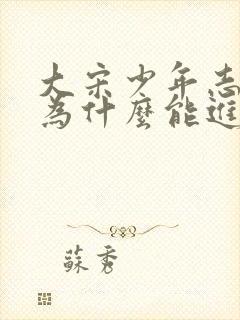 大宋少年志
為什麼能進
蘇秀